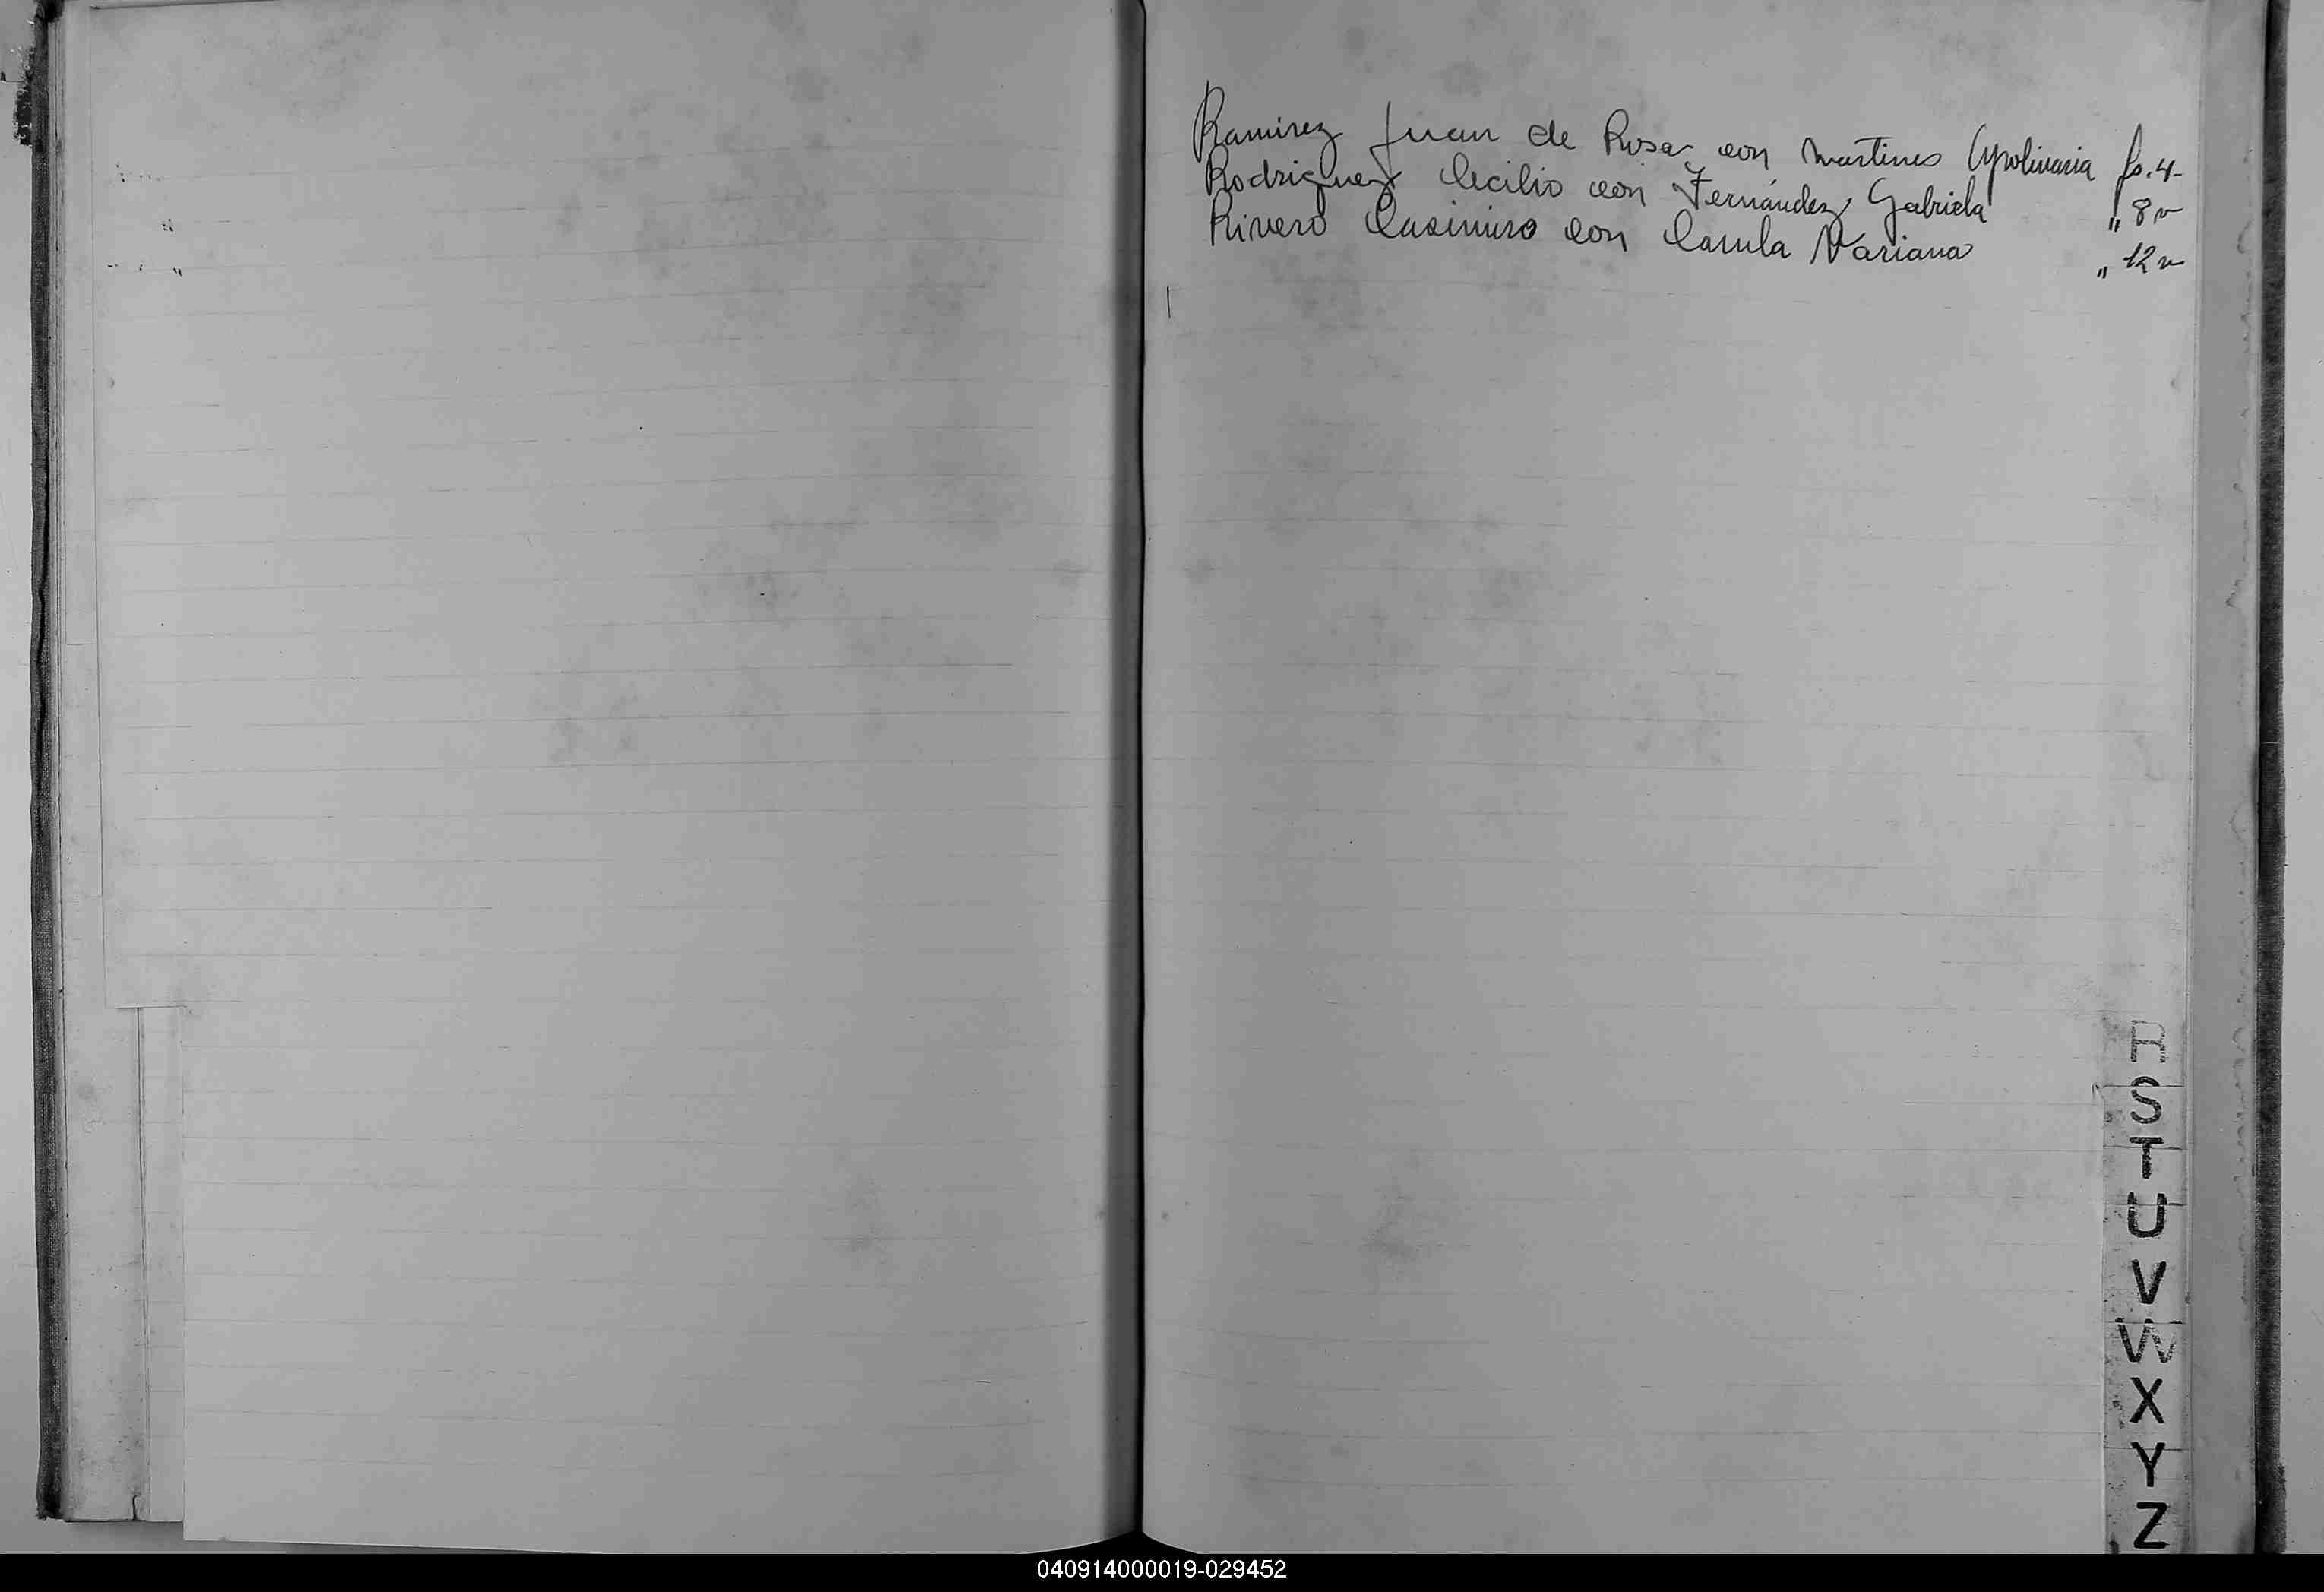 Ramirez Juan de Rosa con Martines Apolinaria fo. 4
Rodriguez Cecilio con Fernández Gabriela " 8 v
Rivero Casimiro con Mariana " 12 v
R
S
T
U
V
W
X
Y
Z
040914000019-029452